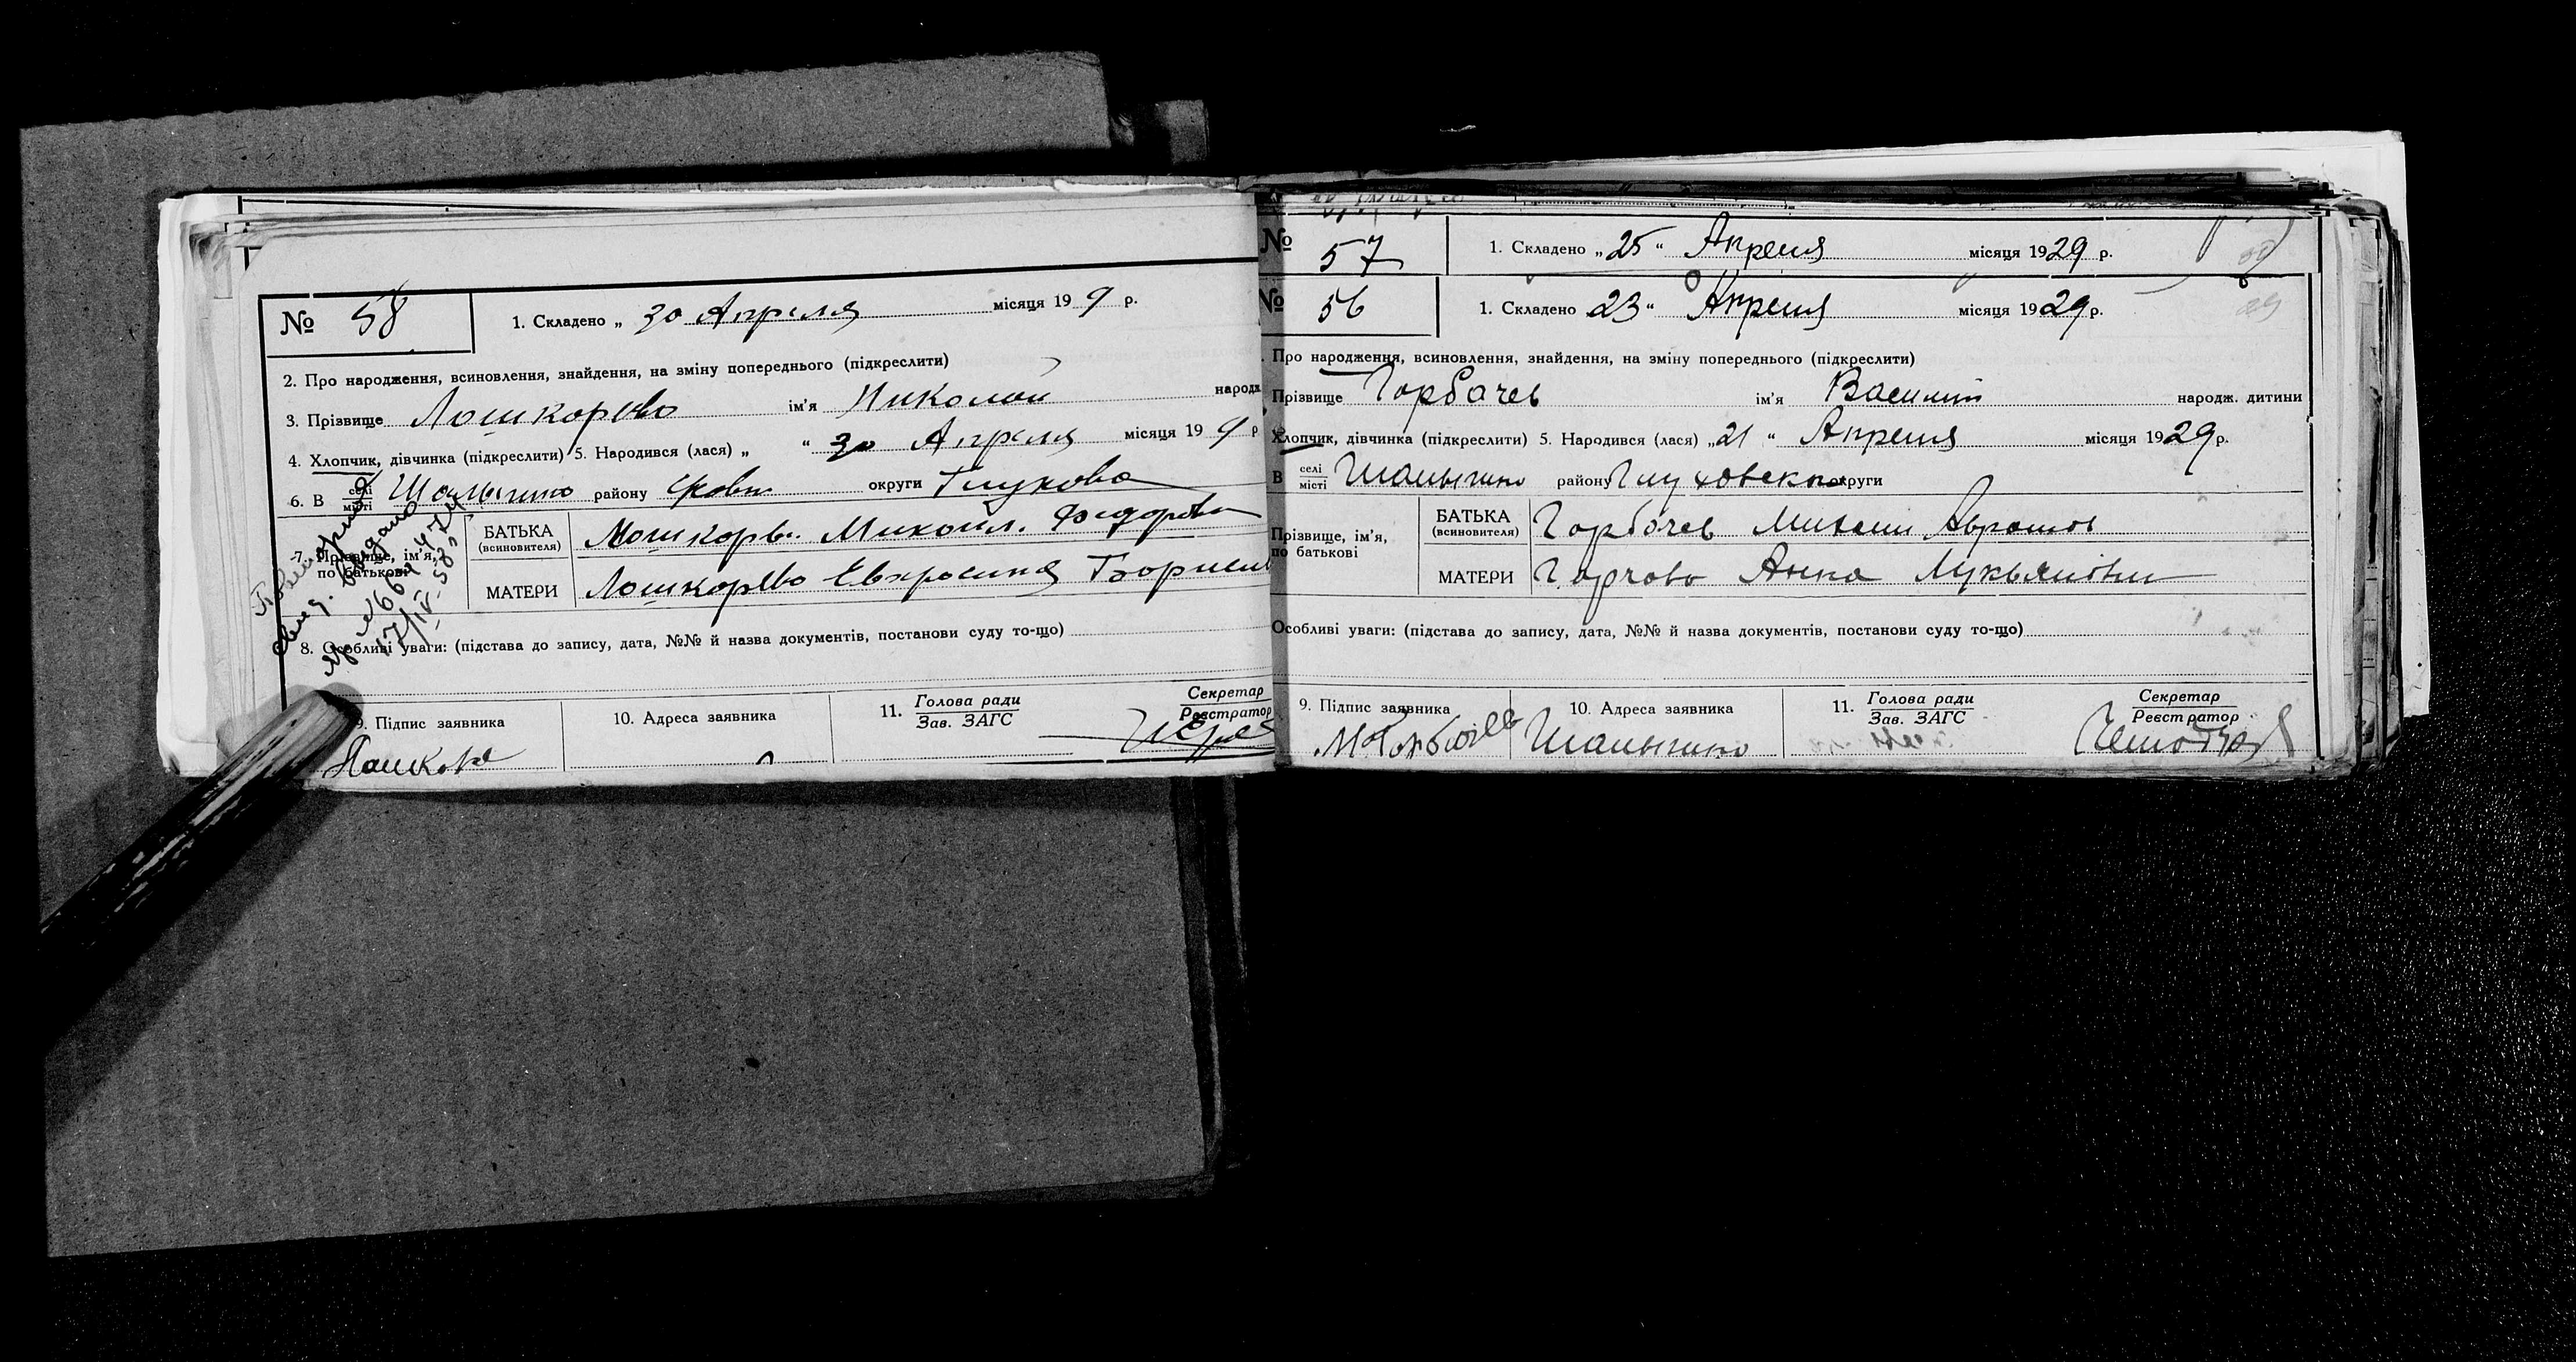 № 58
1. Складено „ 30 Апреля місяця 19 9 р.
2. Про народження, всиновлення, знайдення, на зміну попереднього (підкреслити)
3. Прізвище Лошкорево ім'я Николай народж
4. Хлопчик, дівчинка (підкреслити) 5. Народився (лася) „ “ 30 Апреля місяця 19 9 р
6. В селі місті Шалыгино району округи Глухова
7. Прізвище, ім'я, по батькові
БАТЬКА (всиновителя) Михаил. Федорови
МАТЕРИ Лошкорево Евхросиния Борисив
Повторное
свид. выдано
17/IV-58
8. Особливі уваги: (підстава до запису, дата, №№ й назва документів, постанови суду то-що)
9. Підпис заявника
10. Адреса заявника
11. Голова ради
Зав. ЗАГС
Секретар
Реєстратор
№ 57
1. Складено „25“ Апреля місяця 1929 р.
№ 56
1. Складено 23“ Апреля місяця 1929 р.
Про народження, всиновлення, знайдення, на зміну попереднього (підкреслити)
Прізвище Горбачев ім'я Василий народж. дитини
Хлопчик, дівчинка (підкреслити) 5. Народився (лася) „21“ Апреля місяця 1929 р.
В селі місті Шалыгино району Глуховско округи
Прізвище, ім'я, по батькові
БАТЬКА (всиновителя) Горбачев Михаил Абрамов
МАТЕРИ Анна Лукьяновн
Особливі уваги: (підстава до запису, дата, №№ й назва документів, постанови суду то-що)
9. Підпис заявника
М Горбачев
10. Адреса заявника
Шалыгино
11. Голова ради
Зав. ЗАГС
Секретар
Реєстратор